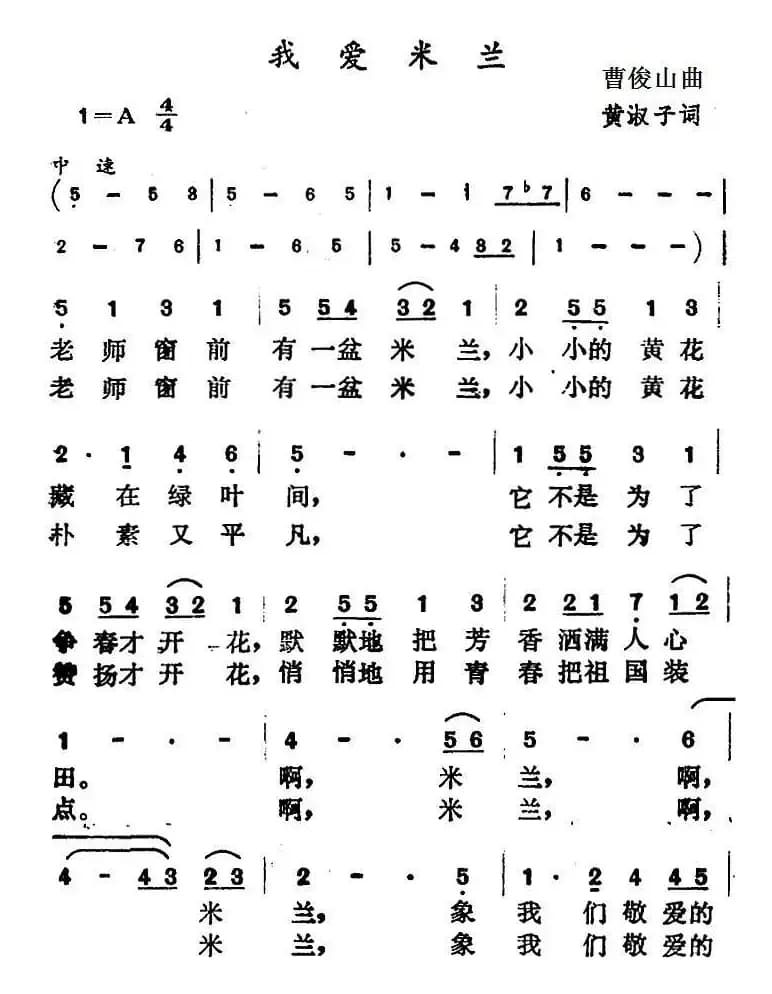 我爱米兰
曹俊山曲
1=A 4/4 黄淑子词
中速
(5 - 5 3 | 5 - 6 5 | 1 - 1 7♭7 | 6 - - - |
2 - 7 6 | 1 - 6 5 | 5 - 4 32 | 1 - - -) |
5 1 3 1 | 5 54 32 1 | 2 55 1 3 |
老师窗前有一盆米兰，小小的黄花
老师窗前有一盆米兰，小小的黄花
2· 1 4 6 | 5 - - - | 1 55 3 1 |
藏在绿叶间，它不是为了
朴素又平凡，它不是为了
5 54 32 1 | 2 55 1 3 | 2 21 7 12 |
争春才开花，默默地把芳香洒满人心
赞扬才开花，悄悄地用青春把祖国装
1 - - - | 4 - - 56 | 5 - - 6 |
田。啊，米兰，啊，
点。啊，米兰，啊，
4 - 43 23 | 2 - - 5 | 1· 2 4 45 |
米兰，象我们敬爱的
米兰，象我们敬爱的